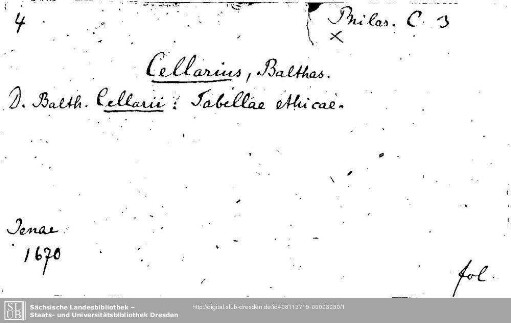 4
Philos. C. 3
Cellarius, Balthas.
D. Balth. Cellarii: Tabellae ethicae.
Jenae
1670
fol.
SLUB
Sächsische Landesbibliothek –
Staats- und Universitätsbibliothek Dresden